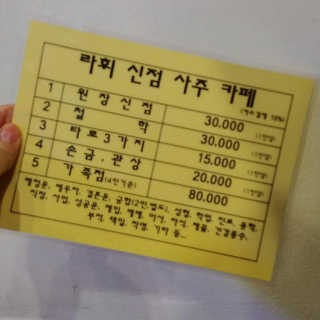 라휘 신점 사주 카페
1 원장신점 30.000
2 철 학 30.000 (1인당)
3 타로3가지 15.000 (1인당)
4 손금.관상 20.000 (1인당)
5 가족점(4인기준) 80.000
행정운, 배우자, 결혼운, 궁합(2인.별도), 성형, 학업, 진로, 융합,
직장, 사업, 성공운, 매입, 매매, 이사, 자식, 재물, 건강용수,
부적, 택일, 작명, 기타 등...